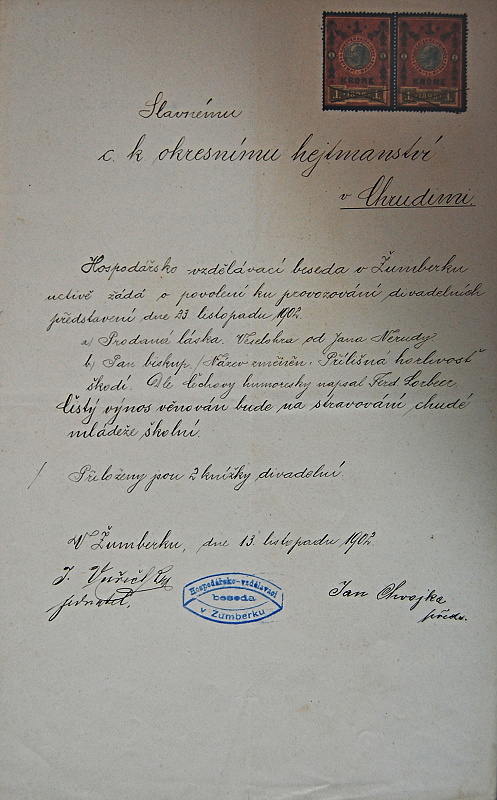 1 1
KRONE KRONE
1 1 1 1
Slavnému
c. k. okresnímu hejtmanství
v Chrudimi.
Hospodářsko vzdělávací beseda v Žumberku
uctivě žádá o povolení ku provozování divadelních
představení dne 23 listopadu 1902.
a/ Prodaná láska. Veselohra od Jana Nerudy.
b/ Pan biskup. /Název změněn: Přílišná horlivost
škodí. Dle Čechovy humoresky napsal Ferd Lorbeer.
Čistý výnos věnován bude na stravování chudé
mládeže školní.
/ Přiloženy jsou 2 knížky divadelní.
V Žumberku, dne 13. listopadu 1902.
J.
jednatel.
Hospodářsko-vzdělávací
beseda
v Žumberku
Jan Chvojka
předs.